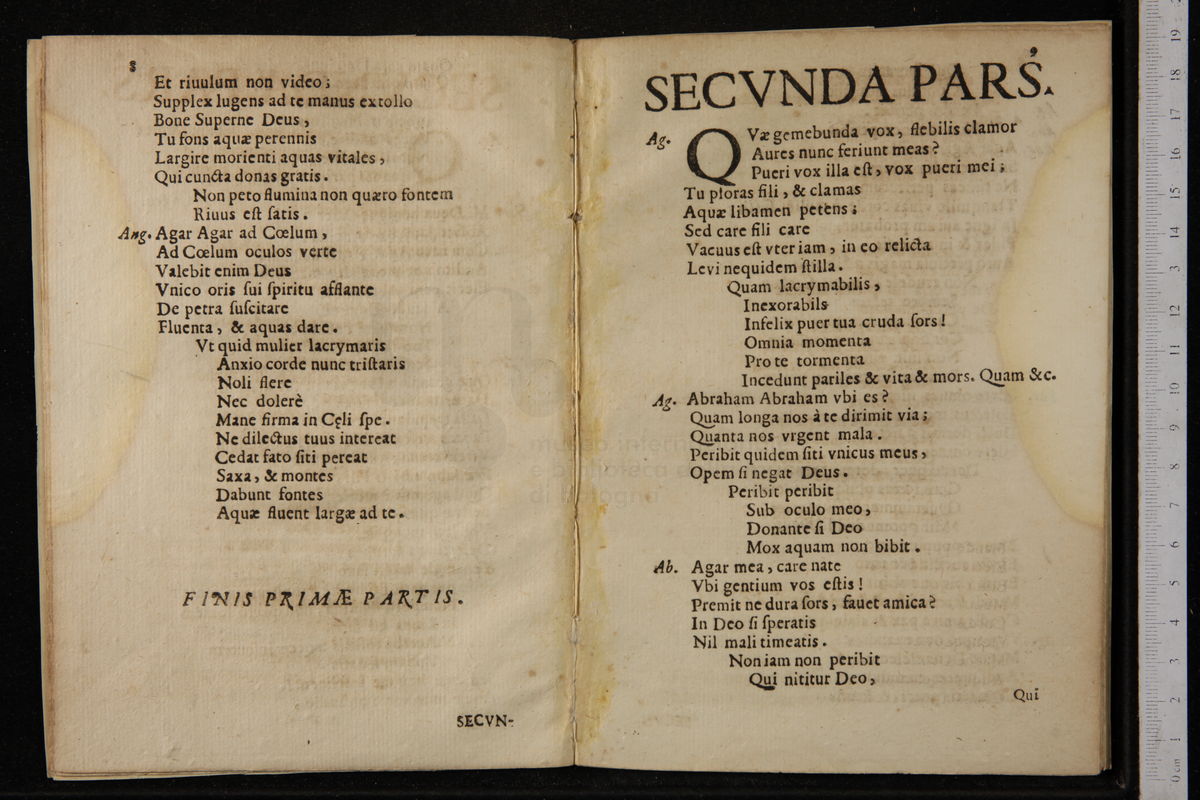 8
Et riuulum non video;
Supplex lugens ad te manus extollo
Bone Superne Deus,
Tu fons aquæ perennis
Largire morienti aquas vitales,
Qui cuncta donas gratis.
Non peto flumina non quæro fontem
Riuus eſt ſatis.
Ang. Agar Agar ad Cœlum,
Ad Cœlum oculos verte
Valebit enim Deus
Vnico oris ſui ſpiritu afflante
De petra ſuſcitare
Fluenta, & aquas dare.
Vt quid mulier lacrymaris
Anxio corde nunc triſtaris
Noli flere
Nec dolerè
Mane firma in Cęli ſpe.
Ne dilectus tuus intereat
Cedat fato ſiti pereat
Saxa, & montes
Dabunt fontes
Aquæ fluent largæ ad te.
FINIS PRIMÆ PARTIS.
SECVN-
9
SECVNDA PARS.
Ag. QVæ gemebunda vox, flebilis clamor
Aures nunc feriunt meas?
Pueri vox illa eſt, vox pueri mei;
Tu ploras fili, & clamas
Aquæ libamen petens;
Sed care fili care
Vacuus eſt vter iam, in eo relicta
Levi nequidem ſtilla.
Quam lacrymabilis,
Inexorabils
Infelix puer tua cruda ſors!
Omnia momenta
Pro te tormenta
Incedunt pariles & vita & mors. Quam &c.
Ag. Abraham Abraham vbi es?
Quam longa nos à te dirimit via;
Quanta nos vrgent mala.
Peribit quidem ſiti vnicus meus,
Opem ſi negat Deus.
Peribit peribit
Sub oculo meo,
Donante ſi Deo
Mox aquam non bibit.
Ab. Agar mea, care nate
Vbi gentium vos eſtis!
Premit ne dura ſors, fauet amica?
In Deo ſi ſperatis
Nil mali timeatis.
Non iam non peribit
Qui nititur Deo,
Qui